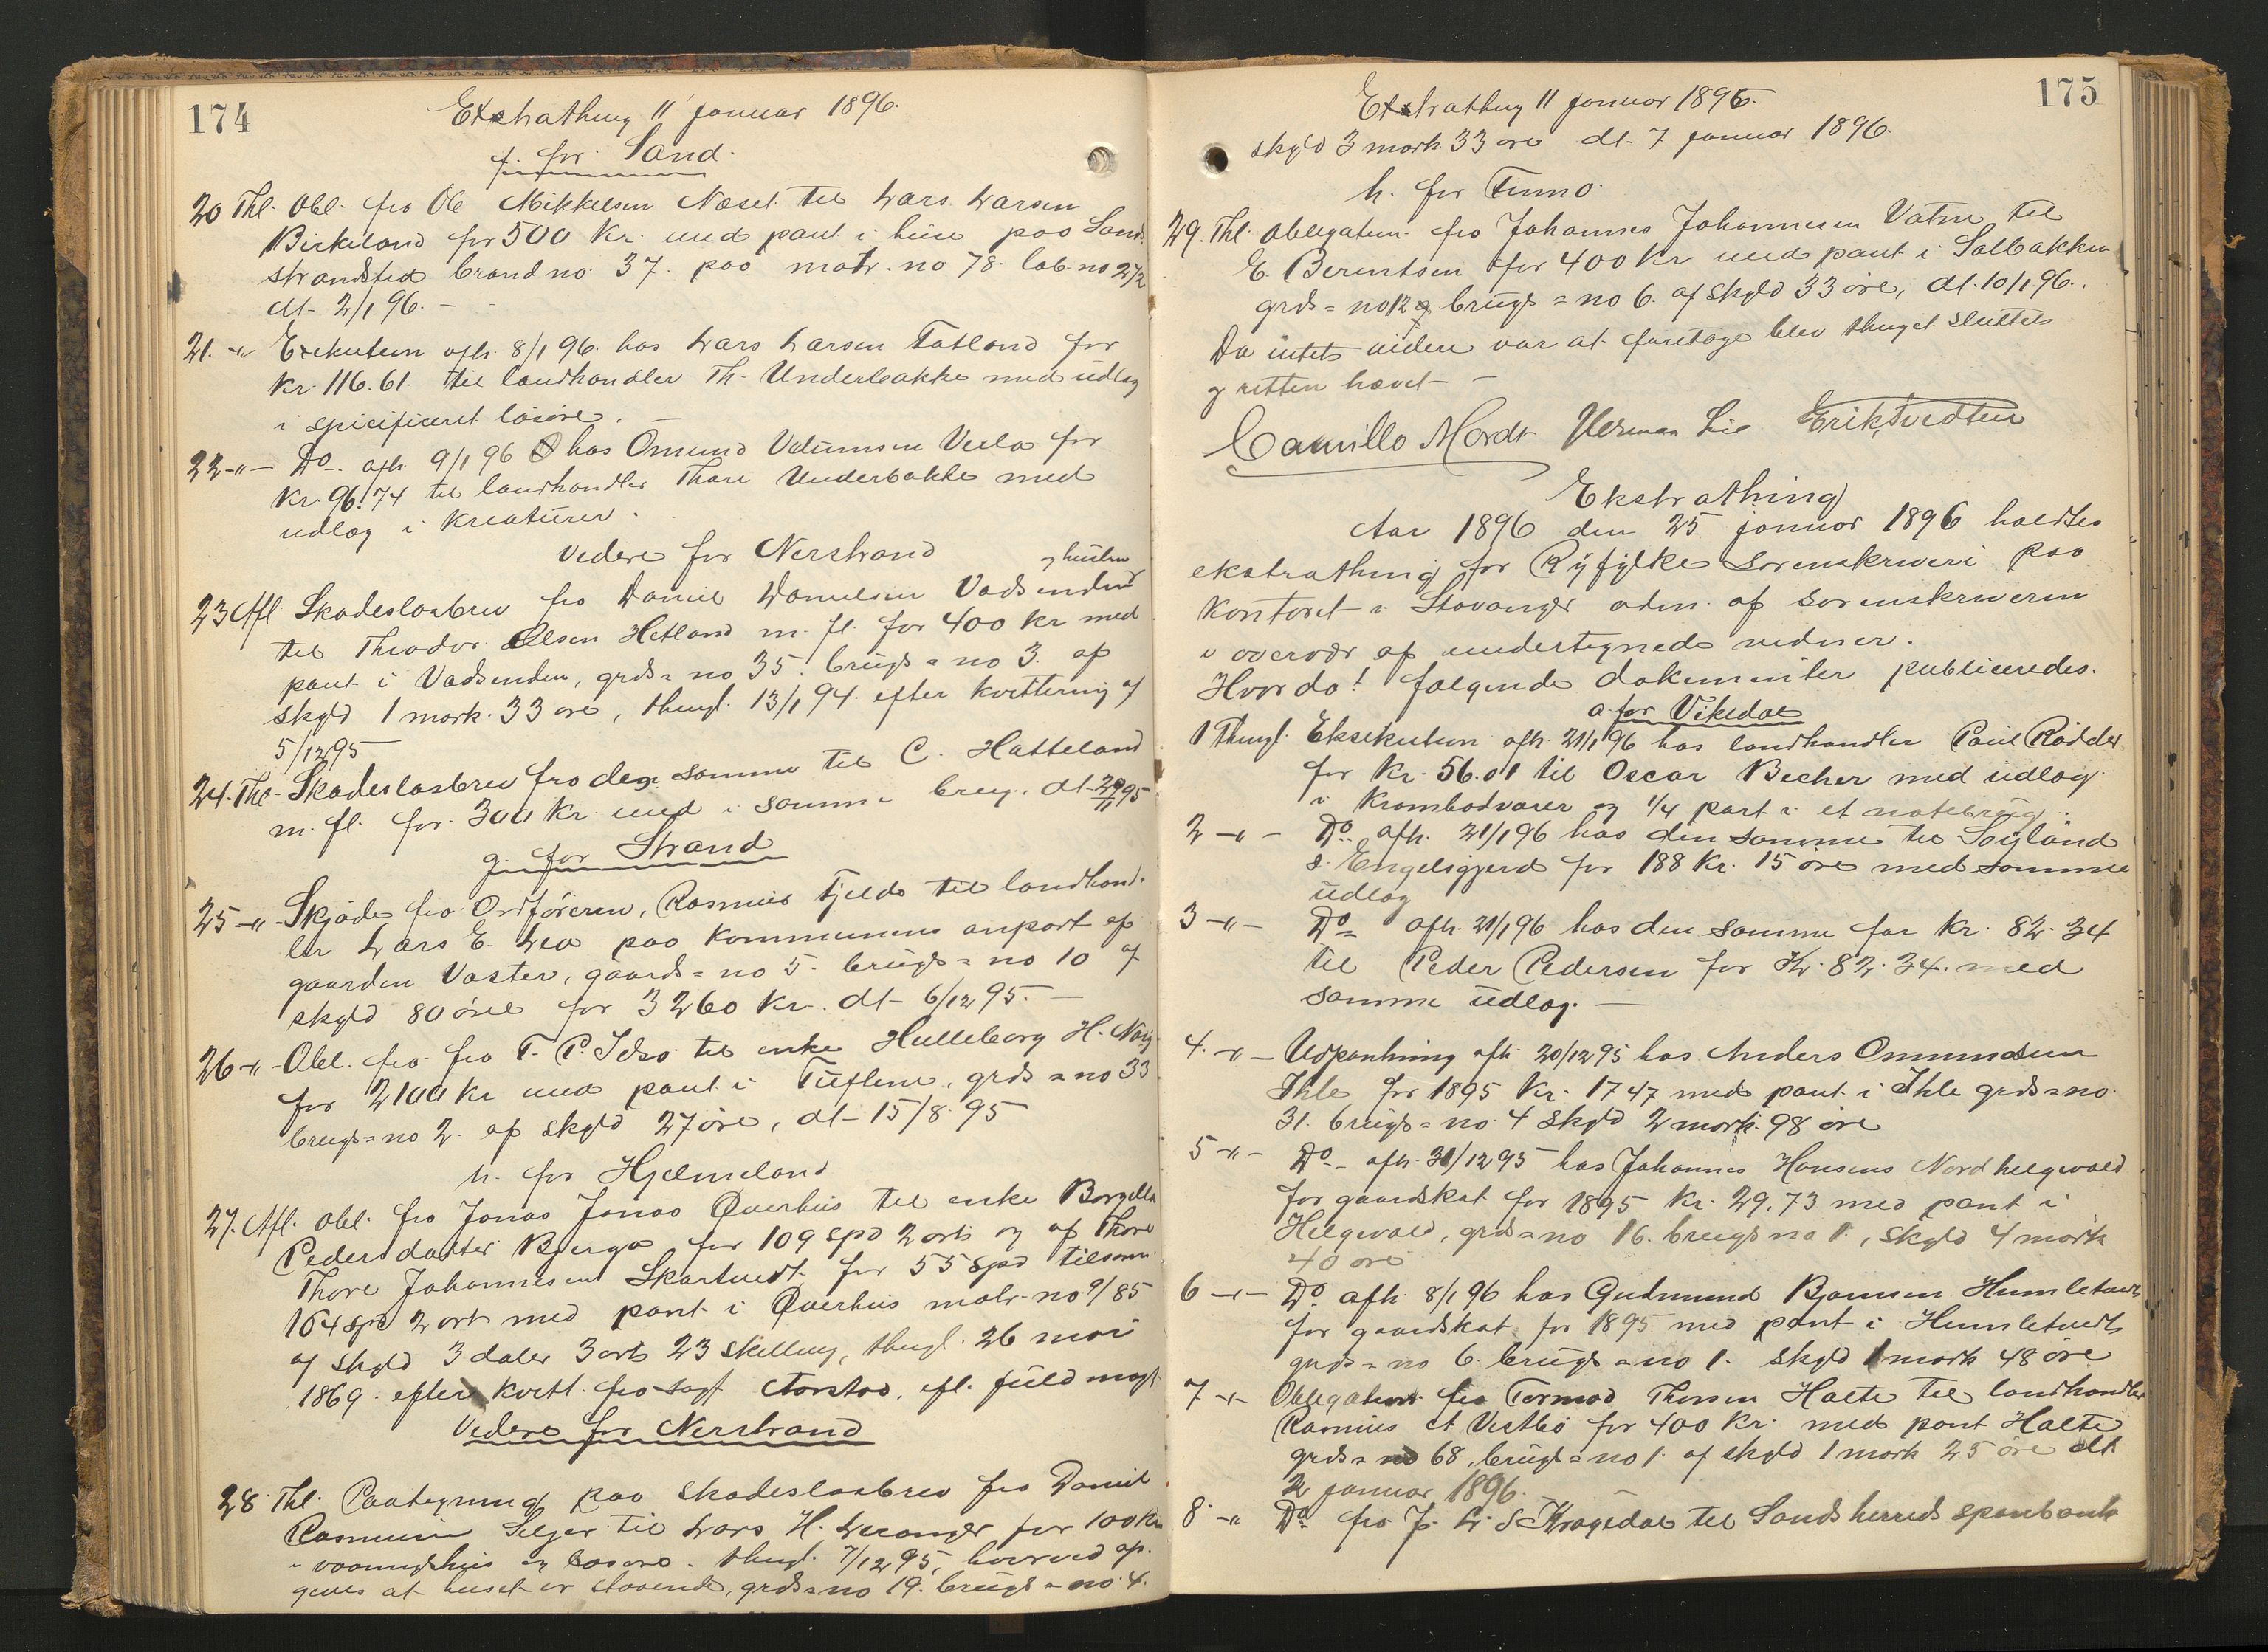 174
Extrathing 11 januar 1896.
f. for Sand.
20 Thl. Obl. fra Ole Mikkelsen Næset til Lars Larsen
Birkeland for 500 Kr. med pant i huse paa Sand
strandsted brand no. 37. paa matr. no 78. lab. no 272
dt. 2/1 96. -
21. -"- Exekution afh. 8/1 96. hos Lars Larsen Tatland for
Kr. 116.61. til landhandler Th. Underbakke med udlæg
i spicificeret løsøre. -
22 -"- Do. afh. 9/1 96 hos Omund Valumsen Vela for
Kr. 96.74 til landhandler Thore Underbakke med
udlæg i Kreaturer.
Videre for Nerstrand
og hustru
23 Afl Skadesløsbrev fra Daniel Danielsen Vadsenden
til Theodor Olsen Hetland m. fl. for 400 Kr med
pant i Vadsenden, grds= no 35. brugs= no 3. af
skyld 1 mark. 33 øre, thingl. 13/1 94. efter kvittering af
5/12 95
24. Thl. Skadesløsbrev fra de samme til C. Hatteland
m. fl. for 300 Kr. med i samme brug. dt. 29/11 95
g. for Strand
25 -"- Skjøde fra Ordføreren, Rasmus Fjelde til landhand-
ler Lars E. Lea paa Kommunens anpart af
gaarden Vaster, gaards= no 5. brugs= no 10 af
skyld 80 øre for 3260 Kr. dt. 6/12 95. -
26 -"- Obl. fra fra T. P. Idsø til enke Helleborg H. Nag
for 2100 Kr med pant i Tuftene, grds= no 33
brugs= no 2. af skyld 27 øre, dt. 15/8 95
h. for Hjelmeland
27. Afl. obl. fra Jonas Jonas Qverhus til enke Borgilla
Pedersdatter Bjerga for 109 spd 2 ort og af Thore
Thore Johannesen Skartvedt for 55 spd tilsam.
164 spd 2 ort med pant i Qverhus matr. no 9/85
af skyld 3 daler 3 ort 23 skilling, thingl. 26 mai
1869. efter kvitt. fra sagf. Aarstad. efl. fuldmagt.
Videre for Nerstrand
28. Thl. Paategning paa skadesløsbrev fra Daniel
Rasmusen Seljer til Lars H. Leranger for 100 Kr
i vaaningshus og løsøre. thingl. 7/12 95, hvorved op-
gives at huset er staaende, grds= no 19. brugs= no 4.
175
Extrathing 11 januar 1896.
skyld 3 mark 33 øre dt. 7 januar 1896.
h. for Finnø.
29. Thl. obligation fra Johannes Johannesen Vatne til
E. Berentsen for 400 Kr med pant i Solbakken
grds= no 12 og brugs= no 6. af skyld 33 øre, dt. 10/1 96.
Da intet videre var at foretage blev thinget sluttet
og retten hævet -
Camillo Mordt Herman Lie Erik Tvedten
Ekstrathing
Aar 1896 den 25 januar 1896 holdtes
ekstrathing for Ryfylke sorenskriveri paa
Kontoret i Stavanger adm. af sorenskriveren
i overvær af undertegnede vidner.
Hvor da! følgende dokumenter publiceredes.
a. for Vikedal
1 Thingl. Eksekution afh. 21/1 96 hos landhandler Paul Rødder
for Kr. 56.01 til Oscar Becher med udlæg
i Krambodvarer og 1/4 part i et notebrug.
2 -"- Do. afh. 21/1 96 hos den samme til Søyland
& Engelsgjerd for 188 Kr. 15 øre med samme
udlæg
3 -"- Do afh. 21/1 96 hos den samme for Kr. 82.34
til Peder Pedersen for Kr. 82.34. med
samme udlæg. -
4. -"- Udpantning afh. 20/12 95 hos Anders Omundsen
Ihle for 1895 Kr. 17 47 med pant i Ihle grds= no.
31. brugs= no. 4 skyld 2 mark. 98 øre
5 -"- Do. afh. 31/12 95 hos Johannes Hansens Nordhelgevold
for gaardskat for 1895 Kr. 29,73 med pant i
Helgevold, grds= no 16. brugs no 1., skyld 4 mark
40 øre
6 -"- Do. afh 8/1 96 hos Gudmund Bjørnsen Humletvedt
for gaardskat for 1895 med pant i Humletvedt
grds= no 6. brugs= no 1. skyld 1 mark 48 øre
7 -"- Obligation fra Tormod Thorsen Halte til landhandler
Rasmus A Vestbø for 400 Kr. med pant Halte
grds= no 68, brugs= no 1. af skyld 1 mark 25 øre dt
2 januar 1896.
8. -"- Do fra J. L. S Kragedal til Sands herreds sparebank